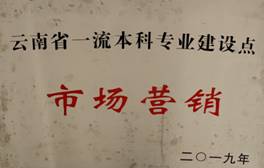 云南省一流本科专业建设点
市场营销
二〇一九年